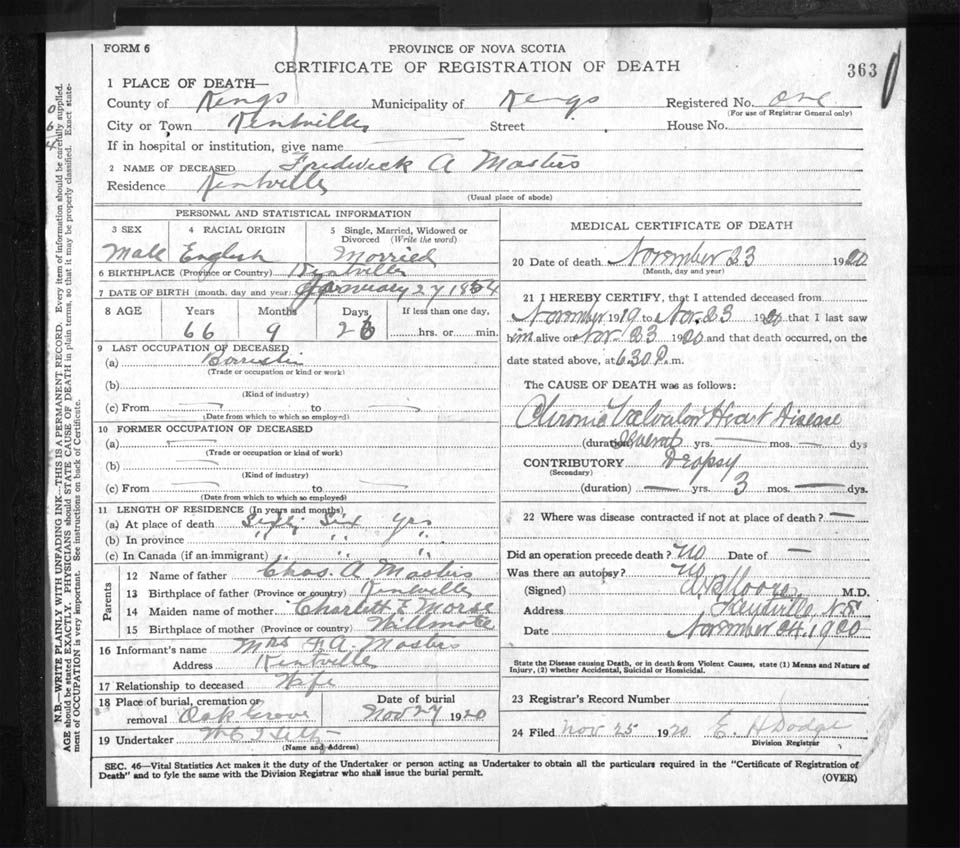 FORM 6
PROVINCE OF NOVA SCOTIA
CERTIFICATE OF REGISTRATION OF DEATH
363
1 PLACE OF DEATH—
County of Kings Municipality of Kings Registered No. one
(For use of Registrar General only)
City or Town Kentville Street House No.
If in hospital or institution, give name
2 NAME OF DECEASED Fredrick A Masters
Residence Kentville
(Usual place of abode)
PERSONAL AND STATISTICAL INFORMATION
3 SEX 4 RACIAL ORIGIN 5 Single, Married, Widowed or Divorced (Write the word)
Male English Married
6 BIRTHPLACE (Province or Country) Kentville
7 DATE OF BIRTH (month, day and year) January 27 1854
8 AGE Years Months Days If less than one day,
66 9 26 hrs. or min.
9 LAST OCCUPATION OF DECEASED
(a) Barrister
(Trade or occupation or kind or work)
(b)
(Kind of industry)
(c) From — to —
(Date from which to which so employed)
10 FORMER OCCUPATION OF DECEASED
(a) —
(Trade or occupation or kind of work)
(b) —
(Kind of industry)
(c) From — to —
(Date from which to which so employed)
11 LENGTH OF RESIDENCE (In years and months)
(a) At place of death Sixty Six yrs
(b) In province " " "
(c) In Canada (if an immigrant) " " "
Parents
12 Name of father Chas. A Masters
13 Birthplace of father (Province or country) Kentville
14 Maiden name of mother Charlott E Morse
15 Birthplace of mother (Province or country) Willmote
16 Informant's name Mrs F. A. Masters
Address Kentville
17 Relationship to deceased Wife
18 Place of burial, cremation or removal Oak Grove
Date of burial Nov 27 1920
19 Undertaker
(Name and Address)
MEDICAL CERTIFICATE OF DEATH
20 Date of death November 23 1920
(Month, day and year)
21 I HEREBY CERTIFY, that I attended deceased from
November 1919 to Nov. 23 1920 that I last saw
him alive on Nov. 23 1920 and that death occurred, on the
date stated above, at 6.30 P. m.
The CAUSE OF DEATH was as follows:
Chronic Valvular Heart Disease
(duration) Several yrs. — mos. — dys
CONTRIBUTORY Dropsy
(Secondary)
(duration) — yrs. 3 mos. — dys.
22 Where was disease contracted if not at place of death? —
Did an operation precede death? No Date of —
Was there an autopsy? No
(Signed) W.B. Moore M.D.
Address Kentville, N.S
Date November 24, 1920
State the Disease causing Death, or in death from Violent Causes, state (1) Means and Nature of
Injury, (2) whether Accidental, Suicidal or Homicidal.
23 Registrar's Record Number
24 Filed Nov 25 1920 E. H Dodge
Division Registrar
SEC. 46—Vital Statistics Act makes it the duty of the Undertaker or person acting as Undertaker to obtain all the particulars required in the "Certificate of Registration of
Death" and to fyle the same with the Division Registrar who shall issue the burial permit.
(OVER)
N.B.—WRITE PLAINLY WITH UNFADING INK—THIS IS A PERMANENT RECORD. Every item of information should be carefully supplied.
AGE should be stated EXACTLY. PHYSICIANS should STATE CAUSE OF DEATH in plain terms, so that it may be properly classified. Exact state-
ment of OCCUPATION is very important. See instructions on back of Certificate.